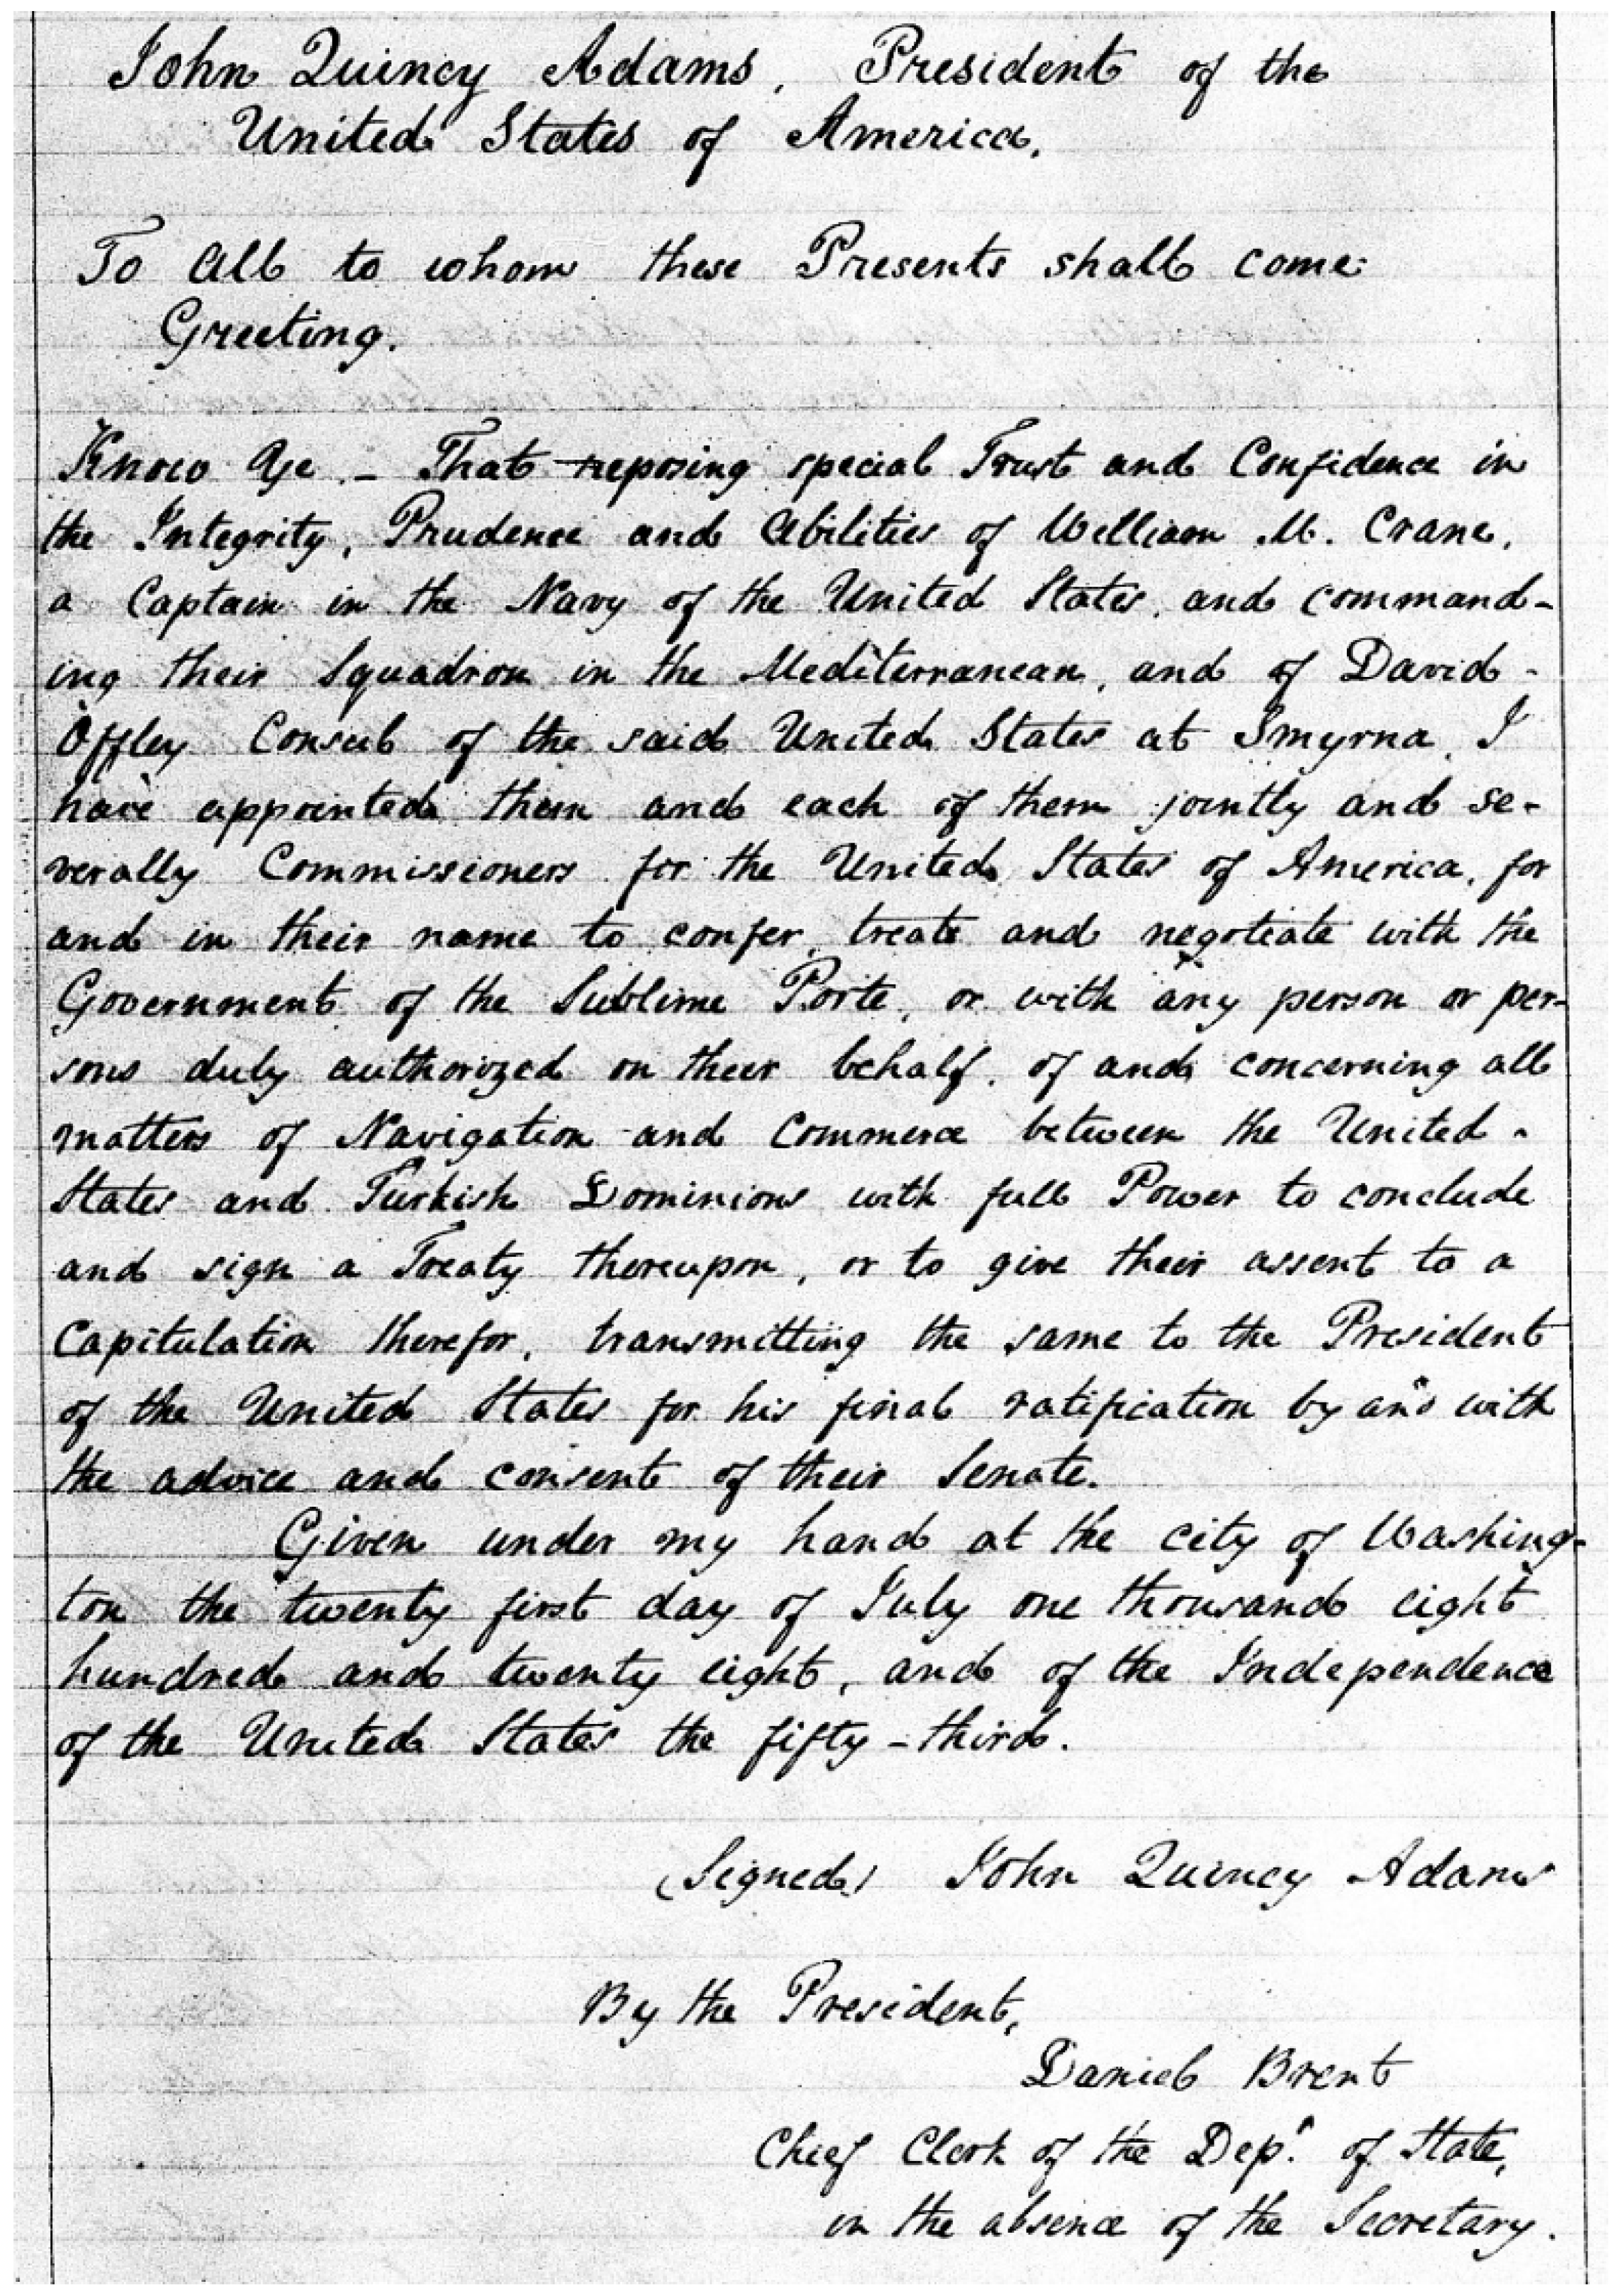 John Quincy Adams, President of the
United States of America.
To All to whom these Presents shall come
Greeting.
Know Ye - That reposing special Trust and Confidence in
the Integrity, Prudence and Abilities of William M. Crane,
a Captain in the Navy of the United States, and command-
ing their Squadron in the Mediterranean, and of David
Offley Consul of the said United States at Smyrna, I
have appointed them and each of them jointly and se-
verally Commissioners for the United States of America, for
and in their name to confer, treate and negotiate with the
Government of the Sublime Porte, or with any person or per-
sons duly authorized on their behalf, of and concerning all
matters of Navigation and Commerce between the United
States and Turkish Dominions with full Power to conclude
and sign a Treaty thereupon, or to give their assent to a
Capitulation therefor, transmitting the same to the President
of the United States for his final ratification by and with
the advice and consent of their Senate.
Given under my hand at the city of Washing-
ton the twenty first day of July one thousand eight
hundred and twenty eight, and of the Independence
of the United States the fifty-third.
(Signed) John Quincy Adams
By the President,
Daniel Brent
Chief Clerk of the Dept. of State,
in the absence of the Secretary.